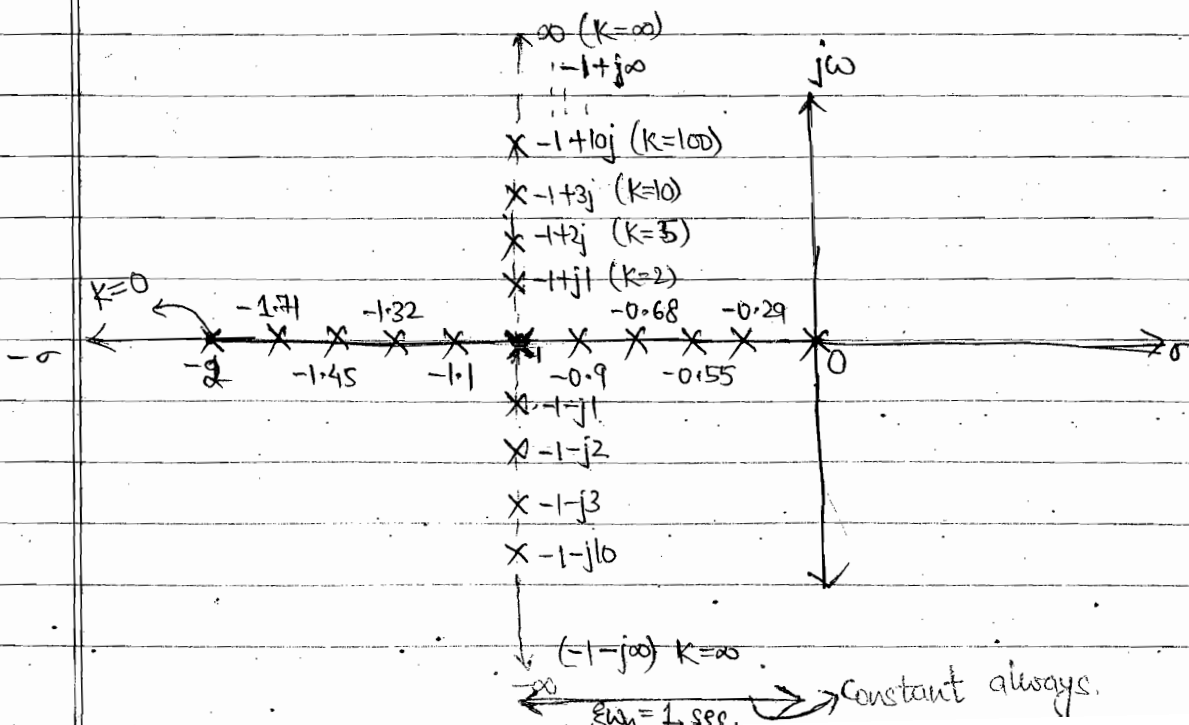 ∞ (K=∞)
-1+j∞
jω
-1+10j (K=100)
-1+3j (K=10)
-1+2j (K=5)
-1+j1 (K=2)
K=0
-1.71
-1.32
-0.68
-0.29
-σ
σ
-2
-1.45
-1.1
-1
-0.9
-0.55
0
-1-j1
-1-j2
-1-j3
-1-j10
(-1-j∞) K=∞
-∞
Constant always.
ξωn=1 sec.